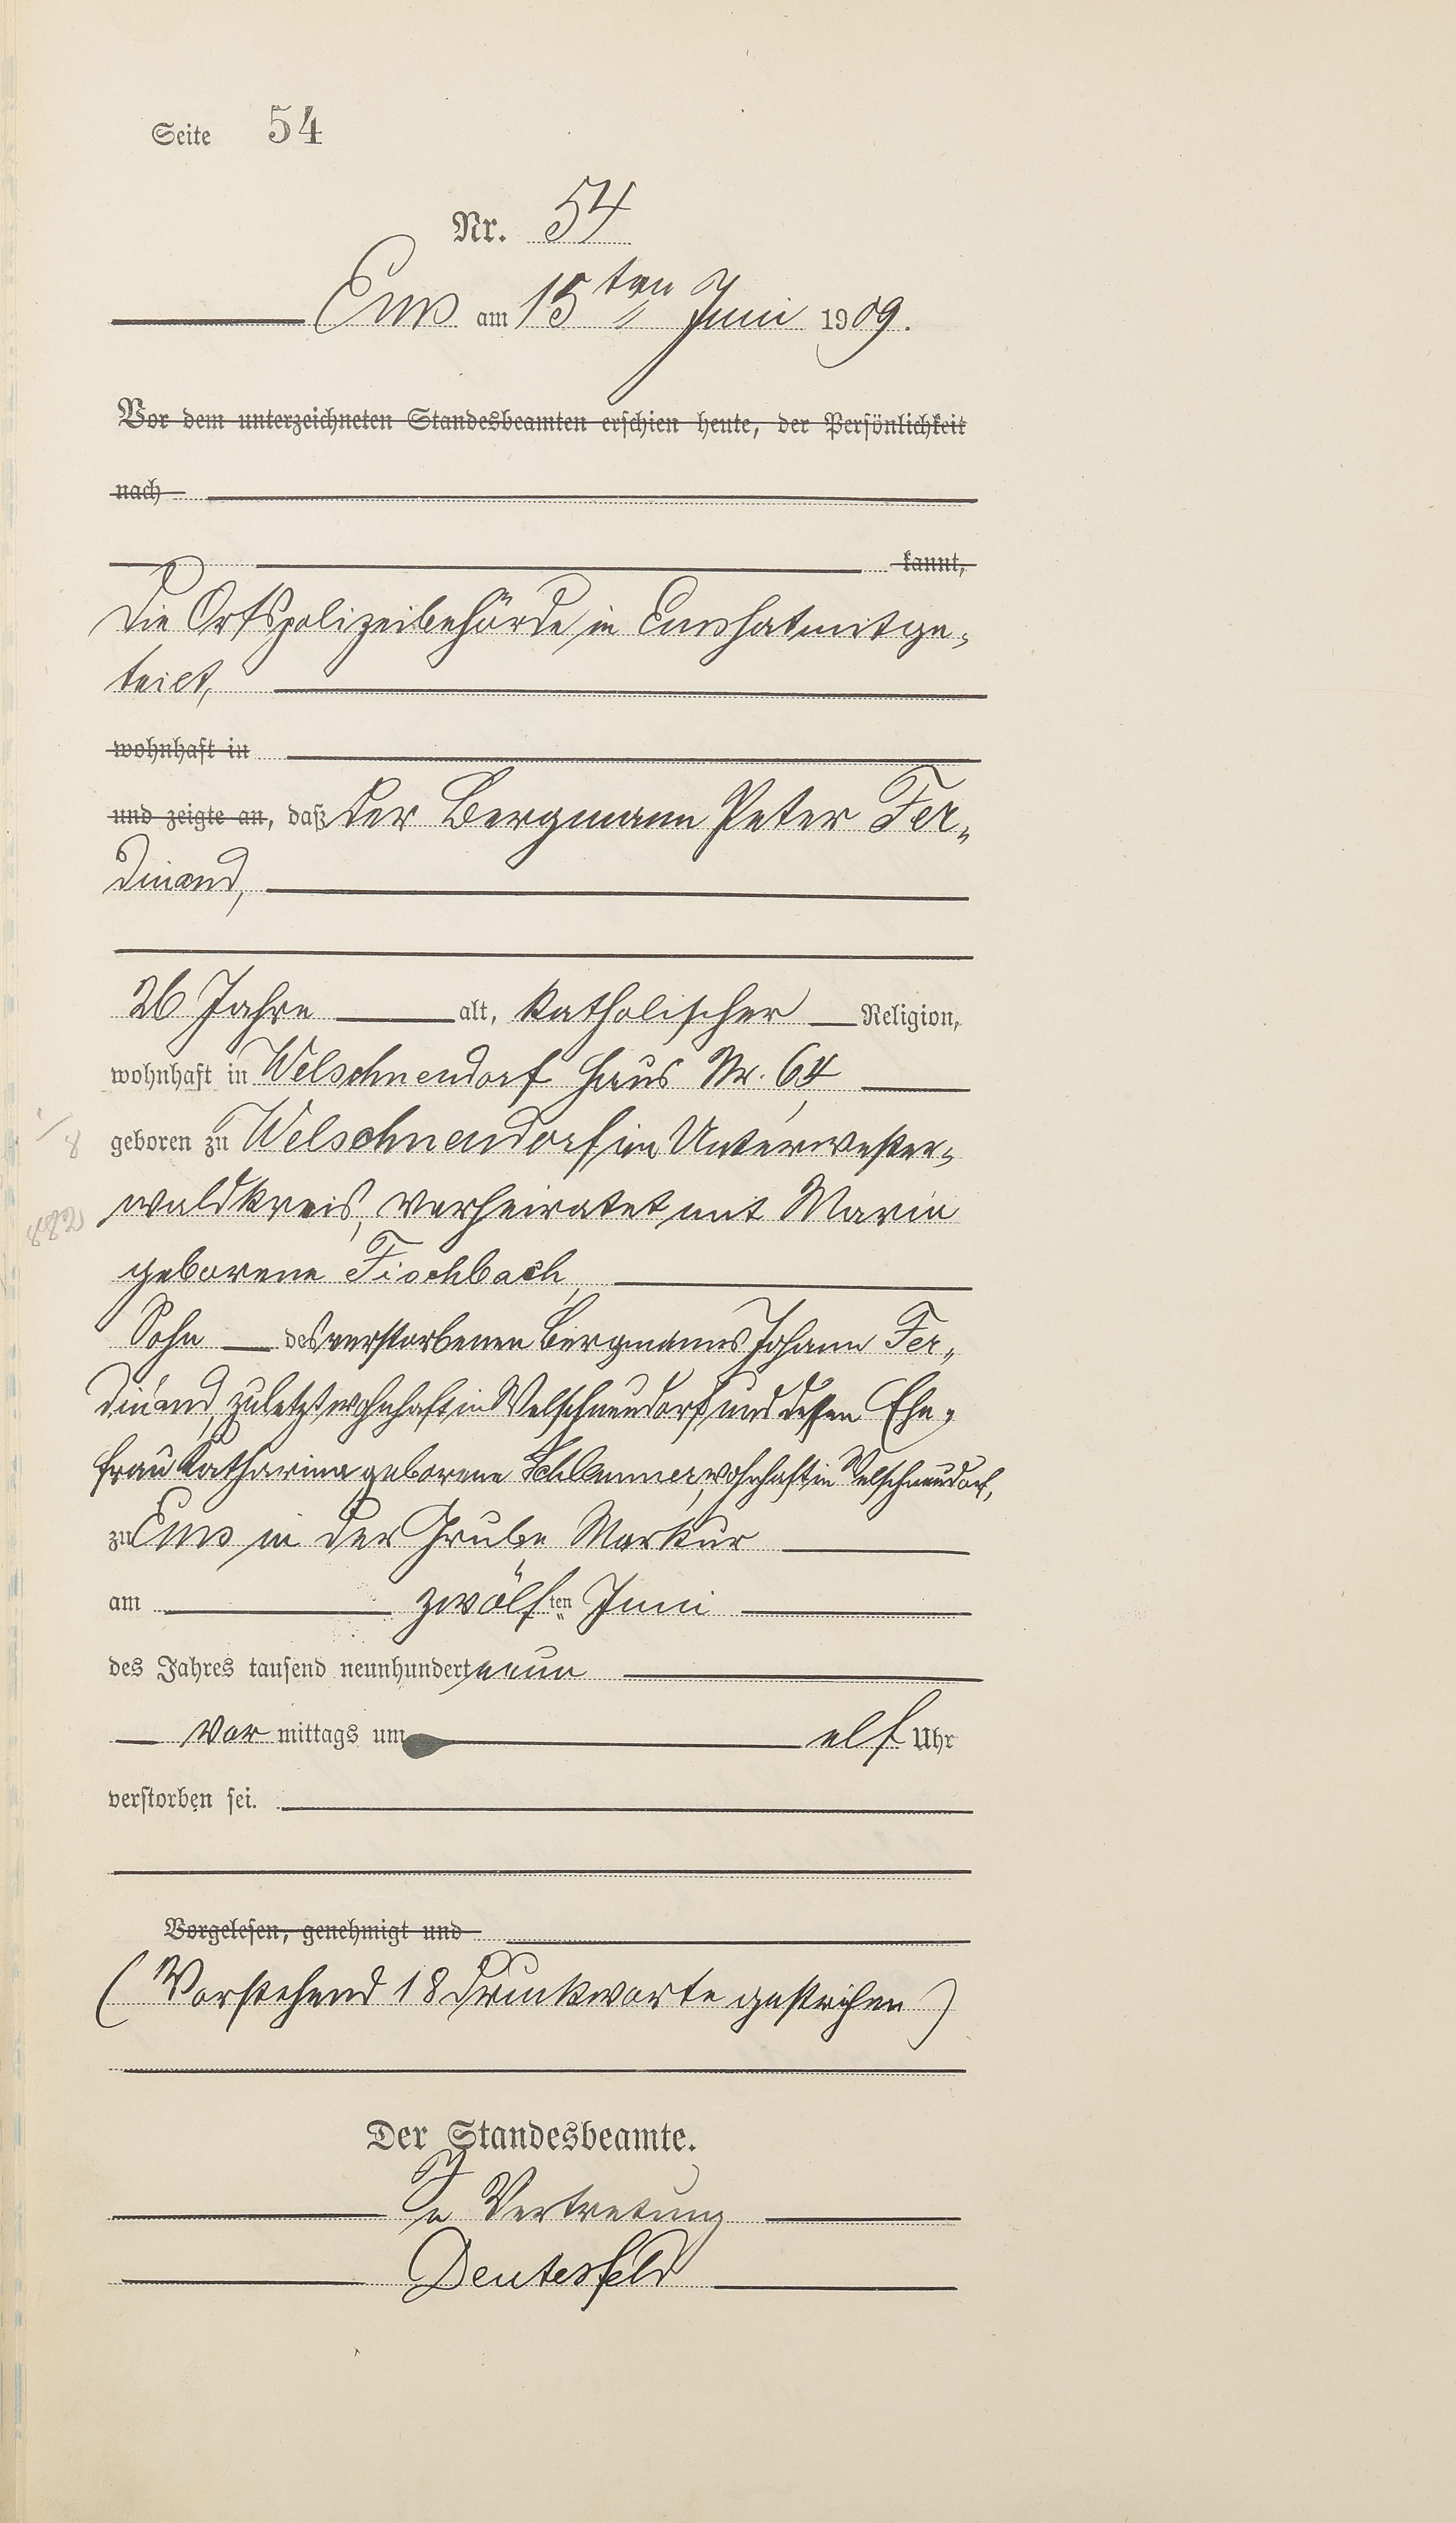 Seite 54
Nr. 54
Ems am 15ten Juni 1909.
Vor dem unterzeichneten Standesbeamten erschien heute, der Persönlichkeit
nach
kannt,
Die Ortspolizeibehörde in Ems hat mitge-
teilt,
wohnhaft in
und zeigte an, daß der Bergmann Peter Fer-
dinand,
26 Jahre alt, katholischer Religion,
wohnhaft in Welschneudorf Haus Nr. 64
geboren zu Welschneudorf im Unterwester-
waldkreis, verheiratet mit Maria
geborene Fischbach,
Sohn des verstorbenen Bergmanns Johann Fer-
dinand, zuletzt wohnhaft in Welschneudorf und dessen Ehe-
frau Katharina geborene Schlemmer, wohnhaft in Welschneudorf,
zu Ems in der Grube Merkur
am zwölften Juni
des Jahres tausend neunhundert neun
Vor mittags um elf Uhr
verstorben sei.
Vorgelesen, genehmigt und
(Vorstehend 18 Druckworte gestrichen)
Der Standesbeamte.
In Vertretung